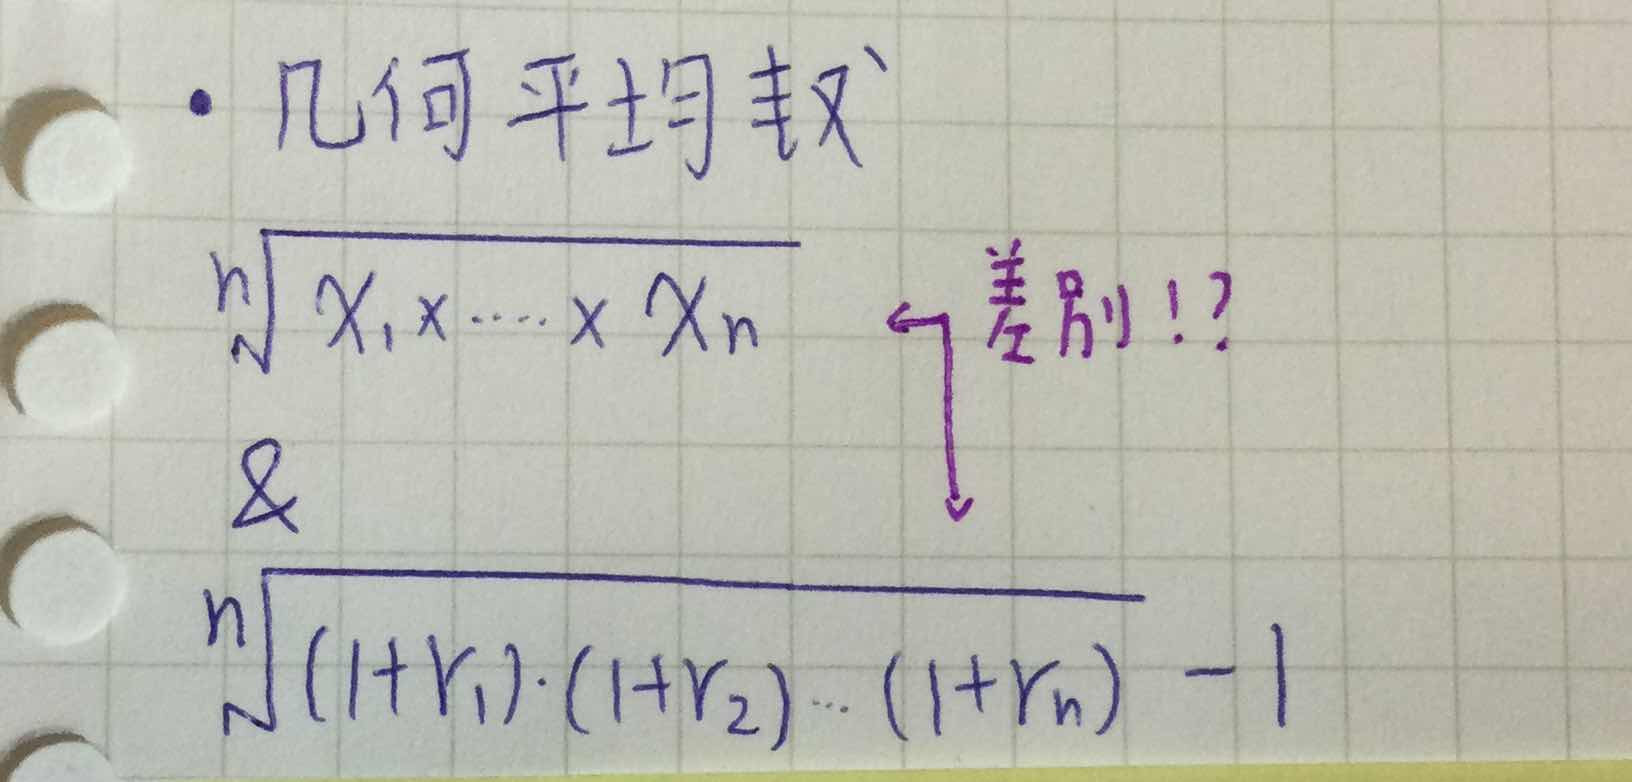 • 几何平均数
ⁿ√(x₁ × ..... × xₙ) ← 差别!?
&
ⁿ√((1+r₁)·(1+r₂)...(1+rₙ)) - 1